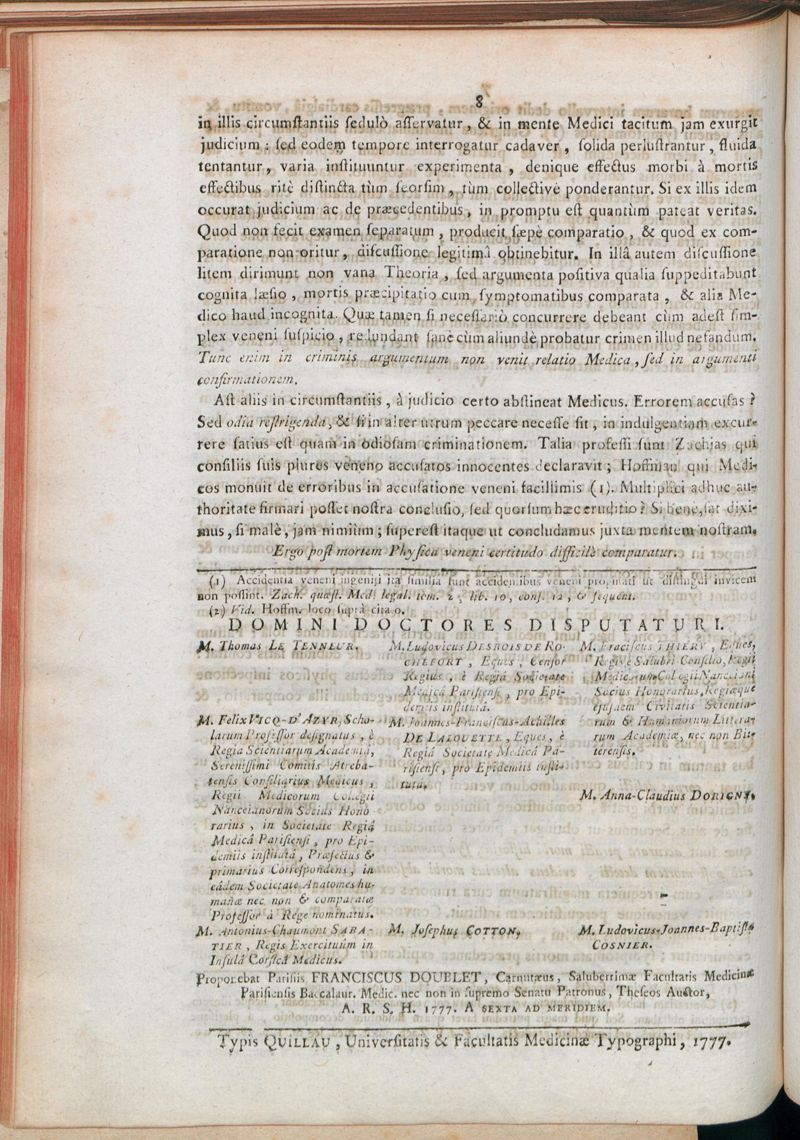 8
in illis circumstantiis sedulò asservatur, & in mente Medici tacitum jam exurgit
judicium ; sed eodem tempore interrogatur cadaver, solida perlustrantur, fluida
tentantur, varia instituuntur experimenta, denique effectus morbi à mortis
effectibus ritè distincta tùm seorsim, tùm collectivè ponderantur. Si ex illis idem
occurat judicium ac de præcedentibus, in promptu est quantùm pateat veritas.
Quod non fecit examen separatum, producit sæpè comparatio, & quod ex com-
paratione non oritur, discussione legitimâ obtinebitur. In illâ autem discussione
litem dirimunt non vana Theoria, sed argumenta positiva qualia suppeditabunt
cognita læsio, mortis præcipitatio cum symptomatibus comparata, & alia Me-
dico haud incognita. Quæ tamen si necessariò concurrere debeant cùm adest sim-
plex veneni suspicio, redundant sanè cùm aliundè probatur crimen illud nefandum.
Tunc enim in criminis argumentum non venit relatio Medica, sed in argumenti
confirmationem.
Ast aliis in circumstantiis, à judicio certo abstineat Medicus. Errorem accusas ?
Sed odia restrigenda, & si in alterutrum peccare necesse sit, in indulgentiam excur-
rere satius est quam in odiosam criminationem. Talia professi sunt Zachjas qui
consiliis suis plures veneno accusatos innocentes declaravit ; Hoffman qui Medi-
cos monuit de erroribus in accusatione veneni facillimis (1). Multiplici adhuc au-
thoritate firmari posset nostra conclusio, sed quorsum hæc eruditio ? Si benè, sat dixi-
mus, si malè, jam nimiùm ; superest itaque ut concludamus juxta mentem nostram.
Ergo post mortem Physica veneni certitudo difficilè comparatur.
(1) Accidentia veneni ingeniti ita similia sunt accidentibus veneni propinati ut distingui invicem
non possint. Zach. quæst. Med. legal. tom. 2, lib. 10, cons. 12, & sequent.
(2) Vid. Hoffm. loco suprà citato.
DOMINI DOCTORES DISPUTATURI.
M. Thomas LE TENNEUR.
M. Felix VICQ-D'AZYR, Scho-
larum Professor designatus, è
Regia Scientiarum Academiâ,
Serenissimi Comitis Atreba-
tensis Consiliarius Medicus,
Regii Medicorum Collegii
Nanceianorum Socius Hono
rarius, in Societate Regiâ
Medicâ Parisiensi, pro Epi-
demiis institutâ, Præfectus &
primarius Correspondens, in
eâdem Societate Anatomes hu-
manæ nec non & comparatæ
Professor à Rege nominatus.
M. Antonius-Chaumont SABA-
TIER, Regis Exercituum in
Insulâ Corsicâ Medicus.
M. Ludovicus DESBOIS DE RO-
CHEFORT, Eques, Censor
Regius, è Regiâ Societate
Medicâ Parisiensi, pro Epi-
demiis institutâ.
M. Joannes-Franciscus-Achilles
DE LALOUETTE, Eques, è
Regiâ Societate Medicâ Pa-
risiensi, pro Epidemiis insti-
tutâ.
M. Josephus COTTON.
M. Franciscus THIERY, Eques,
Regi è Salubri Consilio, Regii
Medicorum Collegii Nanceiani
Socius Honorarius, Regiæque
ejusdem Civitatis Scientia-
rum & Humaniorum Littera-
rum Academiæ, nec non Bit-
terensis.
M. Anna-Claudius DORIGNY.
M. Ludovicus-Joannes-Baptista
COSNIER.
Proponebat Parisiis FRANCISCUS DOUBLET, Carnutæus, Saluberrimæ Facultatis Medicinæ
Parisiensis Baccalaur. Medic. nec non in supremo Senatu Patronus, Theseos Auctor,
A. R. S. H. 1777. A SEXTA AD MERIDIEM.
Typis QUILLAU, Universitatis & Facultatis Medicinæ Typographi, 1777.